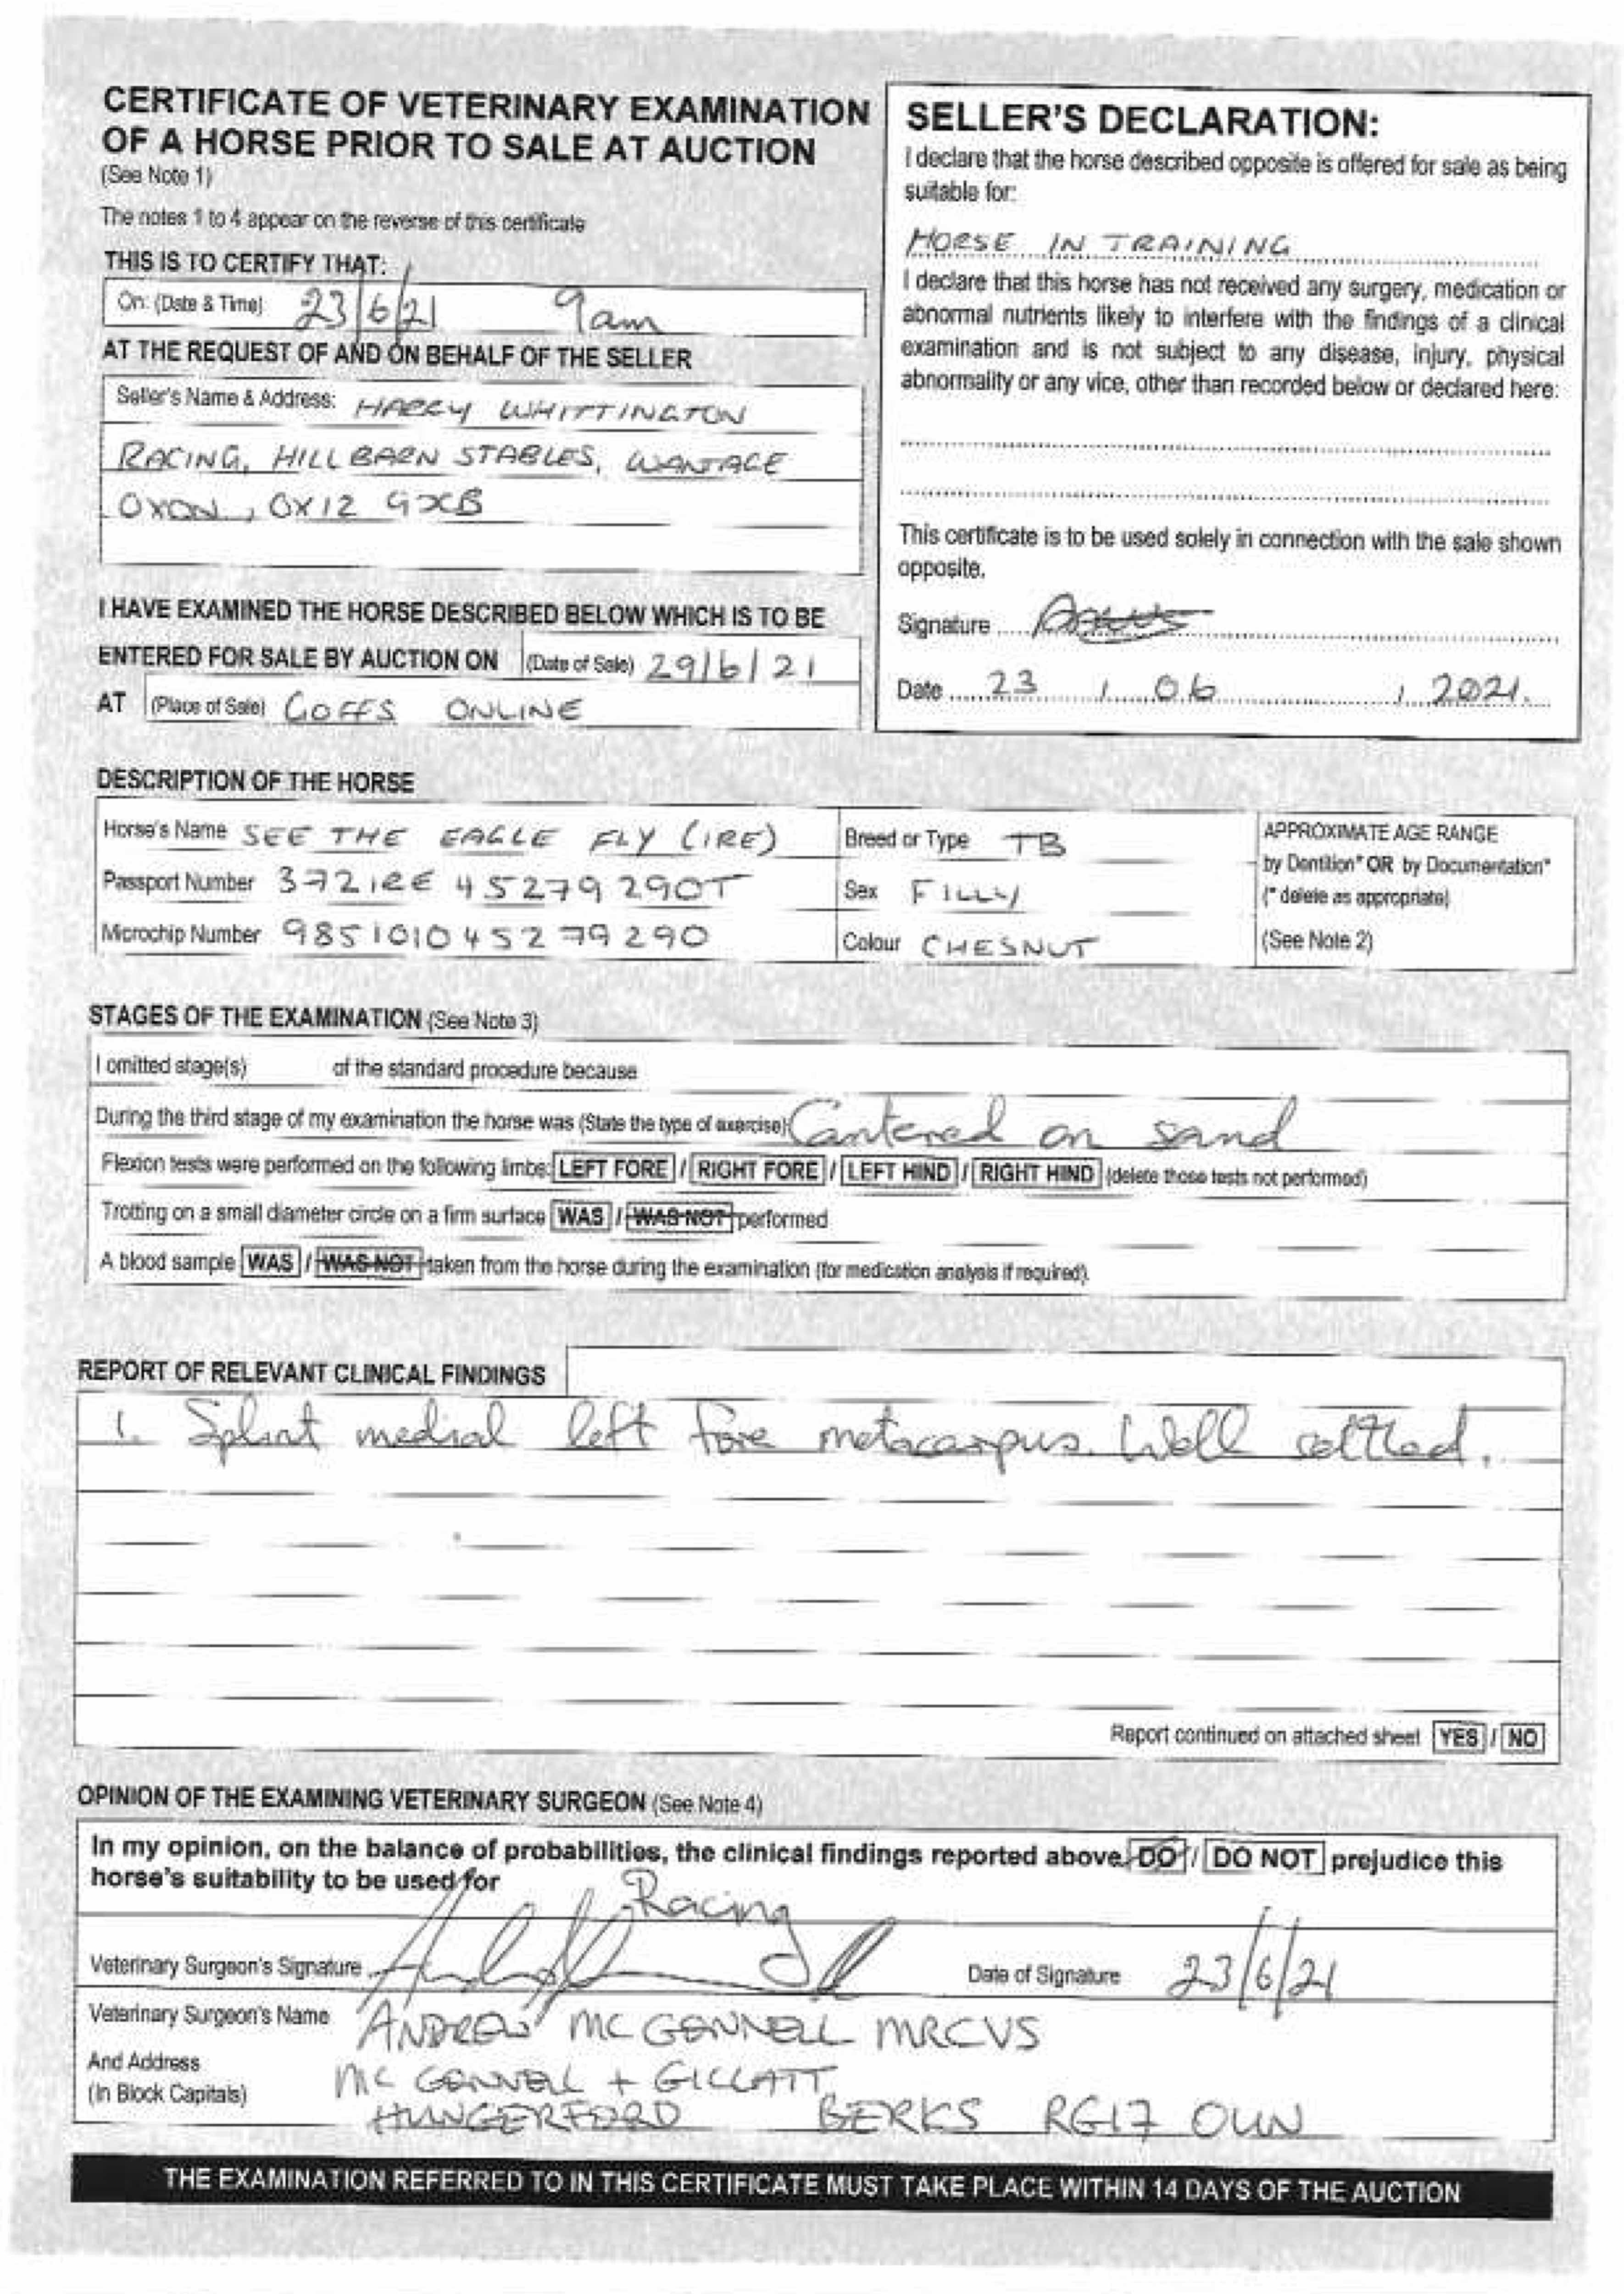 CERTIFICATE OF VETERINARY EXAMINATION
OF A HORSE PRIOR TO SALE AT AUCTION
(See Note 1)
The notes 1 to 4 appear on the reverse of this certificate
THIS IS TO CERTIFY THAT:
On: (Date & Time) 23/6/21 9am
AT THE REQUEST OF AND ON BEHALF OF THE SELLER
Seller's Name & Address: HARRY WHITTINGTON
RACING, HILL BARN STABLES, WANTAGE
OXON, OX12 9XB
I HAVE EXAMINED THE HORSE DESCRIBED BELOW WHICH IS TO BE
ENTERED FOR SALE BY AUCTION ON (Date of Sale) 29/6/21
AT (Place of Sale) GOFFS ONLINE
SELLER'S DECLARATION:
I declare that the horse described opposite is offered for sale as being
suitable for:
HORSE IN TRAINING
I declare that this horse has not received any surgery, medication or
abnormal nutrients likely to interfere with the findings of a clinical
examination and is not subject to any disease, injury, physical
abnormality or any vice, other than recorded below or declared here:
This certificate is to be used solely in connection with the sale shown
opposite.
Signature
Date 23 / 06 / 2021.
DESCRIPTION OF THE HORSE
Horse's Name SEE THE EAGLE FLY (IRE)
Passport Number 372IRE 45279290T
Microchip Number 985101045279290
Breed or Type TB
Sex FILLY
Colour CHESNUT
APPROXIMATE AGE RANGE
by Dentition* OR by Documentation*
(* delete as appropriate)
(See Note 2)
STAGES OF THE EXAMINATION (See Note 3)
I omitted stage(s) of the standard procedure because
During the third stage of my examination the horse was (State the type of exercise) Cantered on sand
Flexion tests were performed on the following limbs: LEFT FORE / RIGHT FORE / LEFT HIND / RIGHT HIND (delete those tests not performed)
Trotting on a small diameter circle on a firm surface WAS / WAS NOT performed
A blood sample WAS / WAS NOT taken from the horse during the examination (for medication analysis if required).
REPORT OF RELEVANT CLINICAL FINDINGS
1. Splint medial left fore metacarpus. Well settled.
Report continued on attached sheet YES / NO
OPINION OF THE EXAMINING VETERINARY SURGEON (See Note 4)
In my opinion, on the balance of probabilities, the clinical findings reported above DO / DO NOT prejudice this
horse's suitability to be used for Racing
Veterinary Surgeon's Signature Date of Signature 23/6/21
Veterinary Surgeon's Name ANDREW MCGONNELL MRCVS
And Address
(In Block Capitals) MC GONNELL + GILLATT
HUNGERFORD BERKS RG17 0UN
THE EXAMINATION REFERRED TO IN THIS CERTIFICATE MUST TAKE PLACE WITHIN 14 DAYS OF THE AUCTION